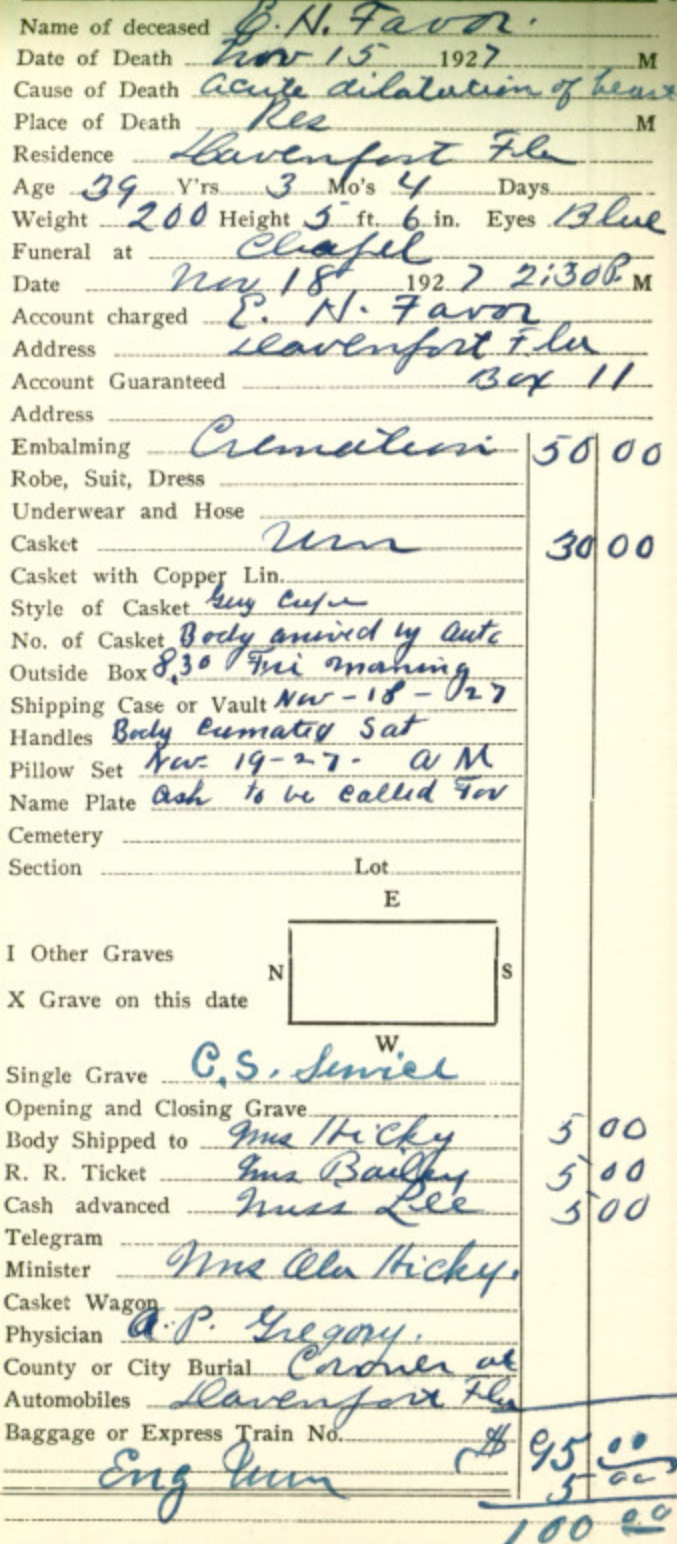 Name of deceased E. H. Favor.
Date of Death Nov 15 1927 M
Cause of Death acute dilatation of heart
Place of Death Res M
Residence Davenport Fla
Age 39 Y'rs 3 Mo's 4 Days
Weight 200 Height 5 ft. 6 in. Eyes Blue
Funeral at Chapel
Date Nov 18, 1927 2:30 P. M
Account charged E. H. Favor
Address Davenport Fla
Account Guaranteed Box 11
Address
Embalming Cremation 50 00
Robe, Suit, Dress
Underwear and Hose
Casket Urn 30 00
Casket with Copper Lin.
Style of Casket
No. of Casket Body arrived by auto
Outside Box 8,30 Fri morning
Shipping Case or Vault Nov-18-27
Handles Body cremated Sat
Pillow Set Nov-19-27- a M
Name Plate ash to be called For
Cemetery
Section Lot
E
I Other Graves
N S
X Grave on this date
W
Single Grave C.S. Service
Opening and Closing Grave
Body Shipped to Mrs Hicky 5 00
R. R. Ticket Mrs Bailey 5 00
Cash advanced Miss Lee 5 00
Telegram
Minister Mrs Ola Hicky.
Casket Wagon
Physician A. P. Gregory.
County or City Burial Coroner at
Automobiles Davenport Fla
Baggage or Express Train No. $ 95 00
Eng Urn 5 00
100 00